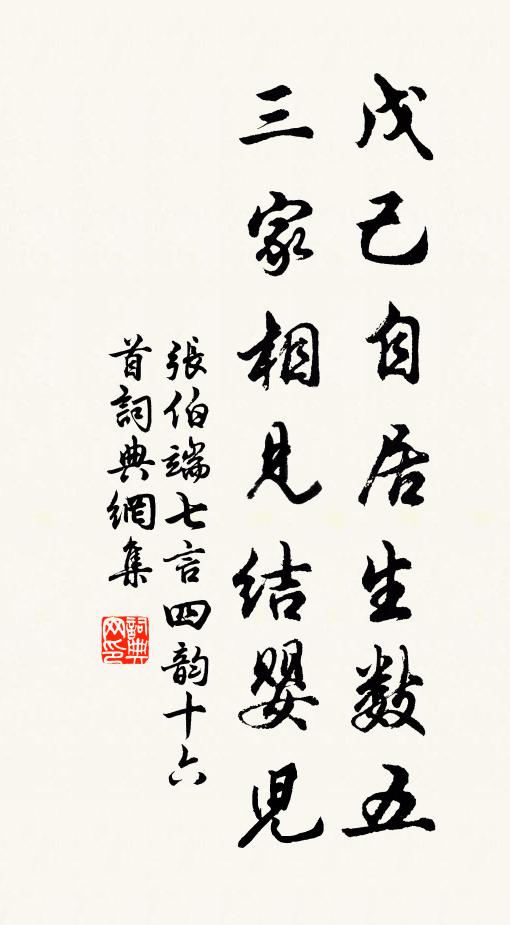 戊己自居生數五
三家相見結嬰兒
張伯端七言四韵十六
首詞典網集
詞典
网印